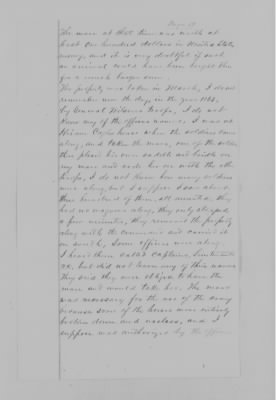 Page 19
The mare at that time was worth at
least One hundred dollars in United States
money, and it is very doubtful if such
an animal could have been bought then
for a much larger sum.
The property was taken in March, I do not
remember now the day, in the year 1865,
by General Wilsons troops, I do not
know any of the officers names. I was at
Hiram house when the soldiers came
along, and taken the mare, one of the soldiers
then placed his own saddle and bridle on
my mare and rode her on with the other
troops, I do not know how many soldiers
were along, but I suppose I saw about
three hundred of them, all mounted, they
had no wagons along, they only stopped
a few minutes, they removed the property
along with the command and carried it
on south, Some officers were along,
I heard them called Captains, Lieutenants
&c, but did not know any of their names
They said they were obliged to have the
mare and would take her. The mare
was necessary for the use of the army
because some of the horses were entirely
broken down and useless, and I
suppose was authorized by the officers